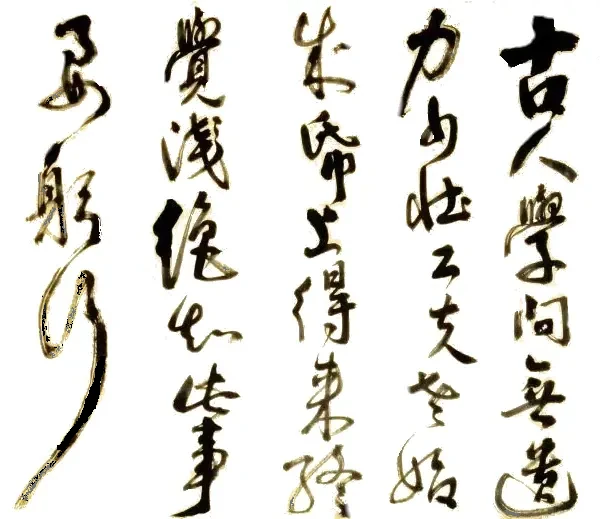 古人學問無遺
力少壯工夫老始
成帋上得來終
覺淺絶知此事
要躬行